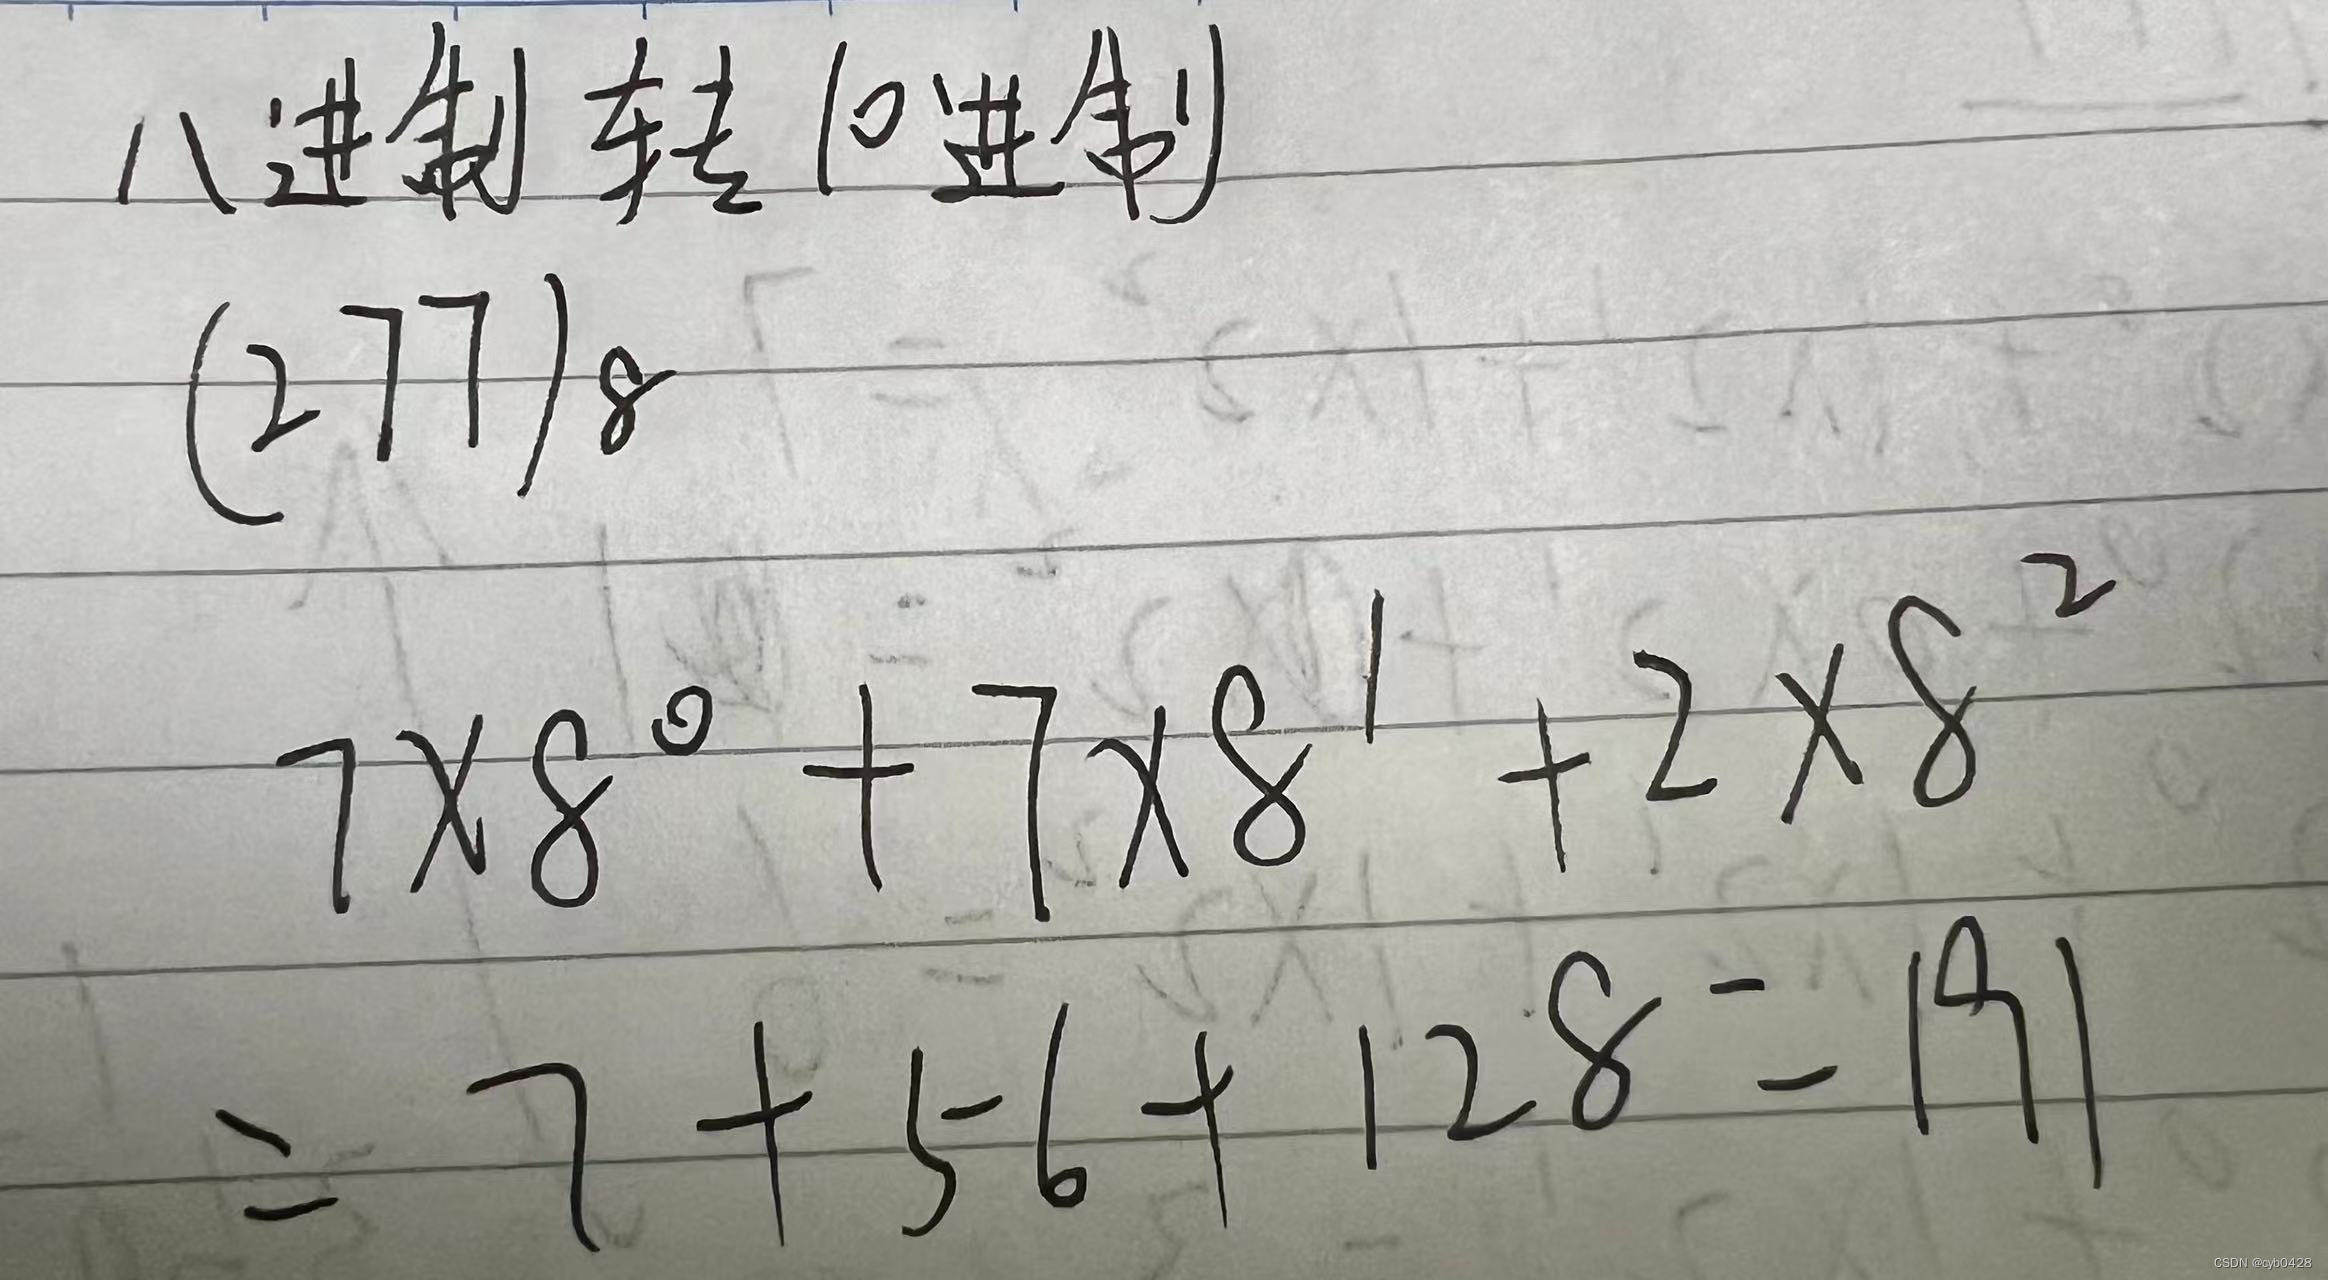 八进制转10进制
(277)₈
7×8⁰+7×8¹+2×8²
=7+56+128=191
CSDN @cyb0428